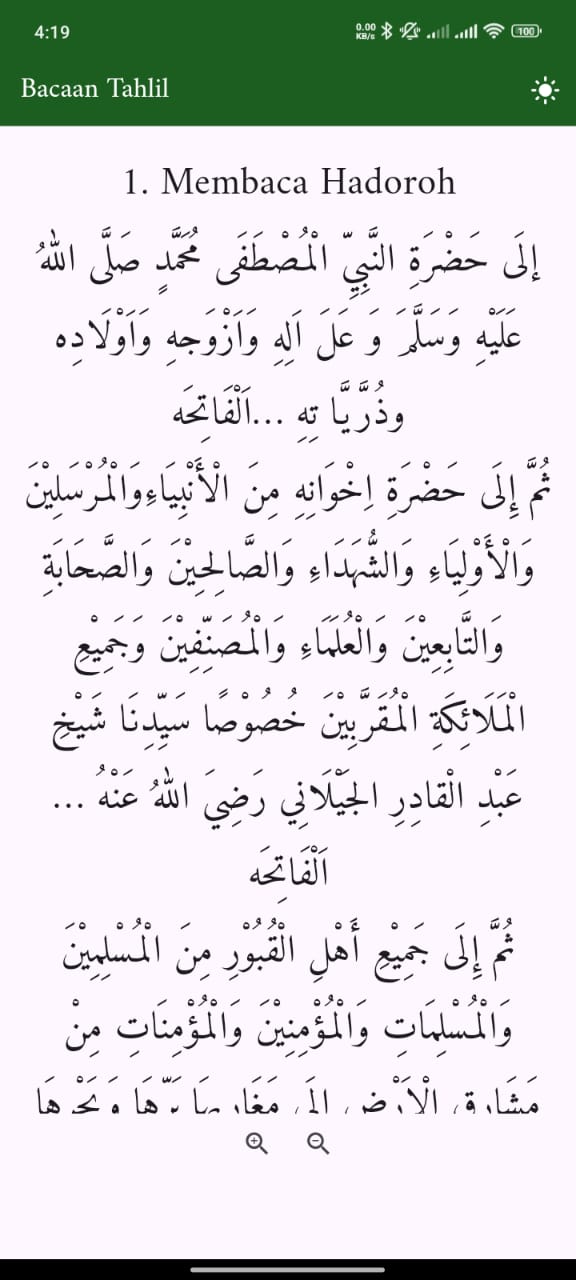 4:19
0.00 KB/s
100
Bacaan Tahlil
1. Membaca Hadoroh
إلَى حَضْرَةِ النَّبِيِّ الْمُصْطَفَى مُحَمَّدٍ صَلَّى اللهُ
عَلَيْهِ وَسَلَّمَ وَ عَلَ اَلِهِ وَاَزْوَجِهِ وَاَوْلَادِه
وذُرَّيَّا تِهِ ...اَلْفَاتِحَه
ثُمَّ إِلَى حَضْرَةِ اِخْوَانِهِ مِنَ الْأَنْبِيَاءِوَالْمُرْسَلِيْنَ
وَالْأَوْلِيَاءِ وَالشُّهَدَاءِ وَالصَّالِحِيْنَ وَالصَّحَابَةِ
وَالتَّابِعِيْنَ وَالْعُلَمَاءِ وَالْمُصَنِّفِيْنَ وَجَمِيْعِ
الْمَلَائِكَةِ الْمُقَرَّبِيْنَ خُصُوْصًا سَيِّدِنَا شَيْخِ
عَبْدِ الْقادِرِ الجَيْلَانِي رَضِيَ اللهُ عَنْهُ ...
اَلْفَاتِحَه
ثُمَّ إِلَى جَمِيْعِ أَهْلِ الْقُبُوْرِ مِنَ الْمُسْلِمِيْنَ
وَالْمُسْلِمَاتِ وَالْمُؤْمِنِيْنَ وَالْمُؤْمِنَاتِ مِنْ
مَشَارِقِ الْاَرْضِ اِلَى مَغَارِبِهَا بَرِّهَا وَبَحْرِهَا